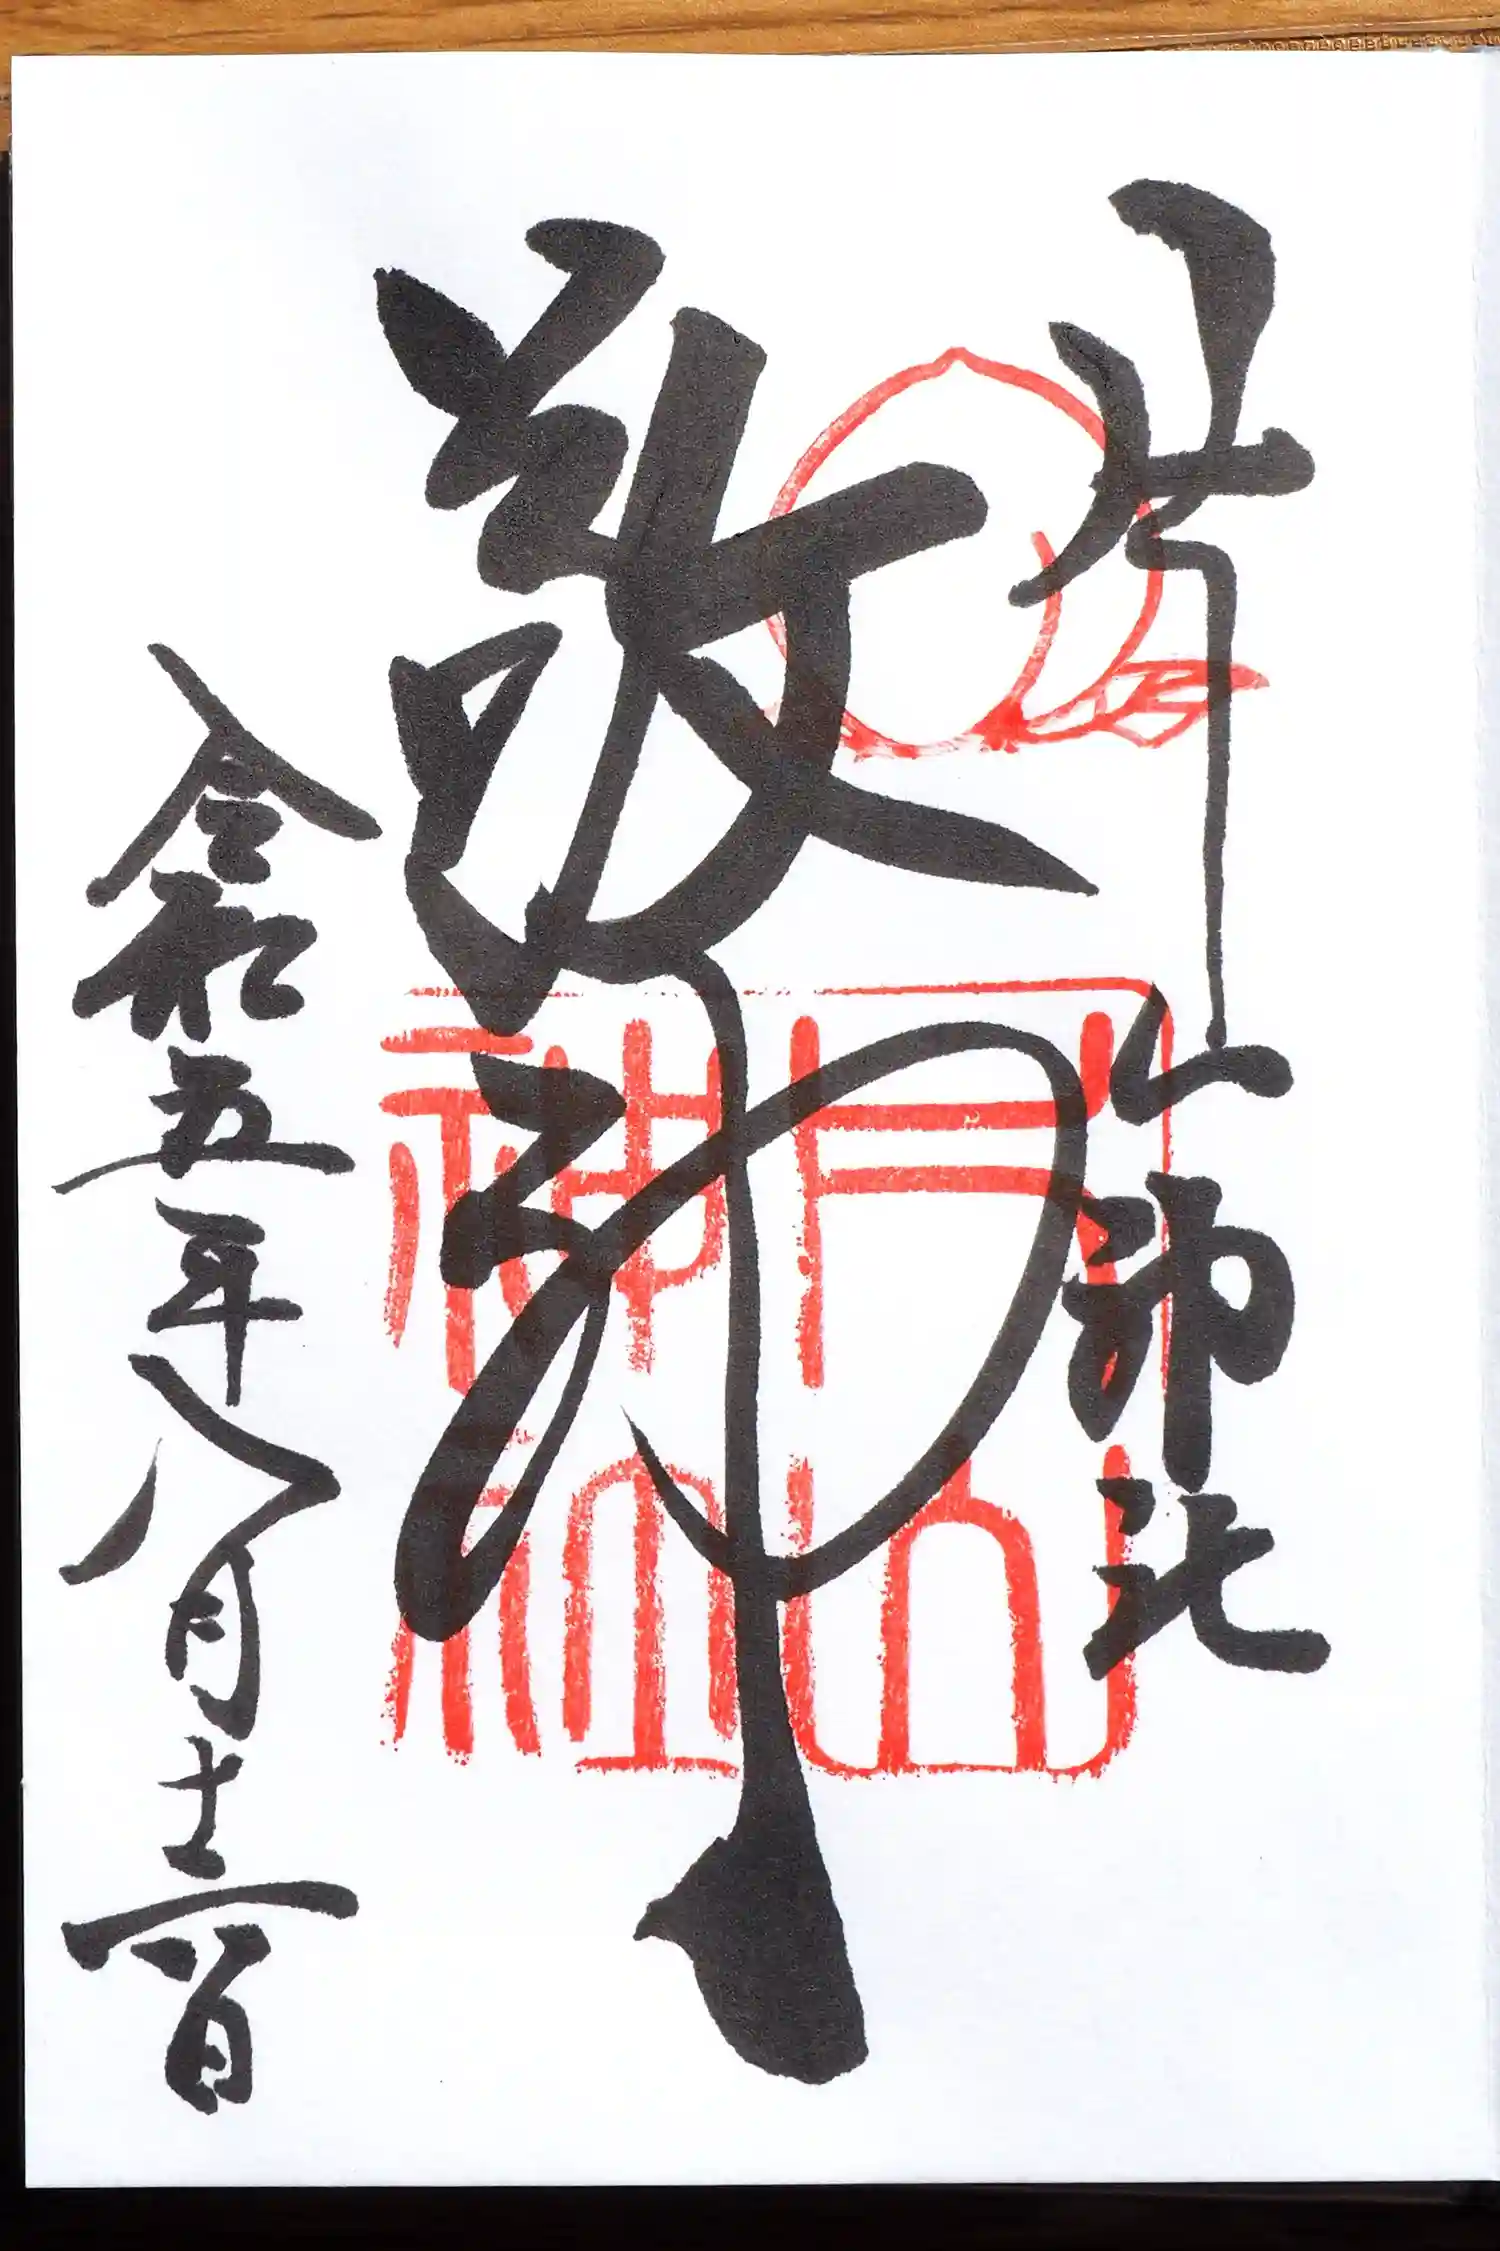 片山神社
敬神
令和五年八月十三日
片山神社